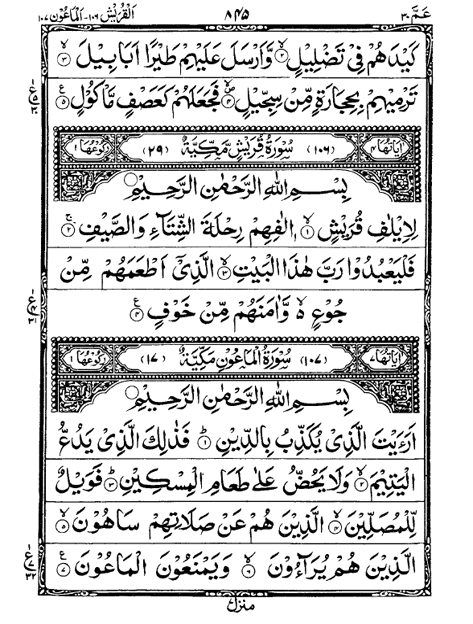 عَمَّ ٣٠ ٨٤٥ الْقُرَيْش ١٠٦- الْمَاعُوْن ١٠٧
كَيْدَهُمْ فِيْ تَضْلِيْلٍ ۙ﴿٢﴾ وَّاَرْسَلَ عَلَيْهِمْ طَيْرًا اَبَابِيْلَ ۙ﴿٣﴾
تَرْمِيْهِمْ بِحِجَارَةٍ مِّنْ سِجِّيْلٍ ۪ۙ﴿٤﴾ فَجَعَلَهُمْ كَعَصْفٍ مَّاْكُوْلٍ ﴿٥﴾ ع
اٰيَاتُهَا ٤ (١٠٦) سُوْرَةُ قُرَيْشٍ مَّكِّيَّةٌ (٢٩) رُكُوْعُهَا ١
بِسْمِ اللّٰهِ الرَّحْمٰنِ الرَّحِيْمِ
لِاِيْلٰفِ قُرَيْشٍ ۙ﴿١﴾ اٖلٰفِهِمْ رِحْلَةَ الشِّتَآءِ وَالصَّيْفِ ۚ﴿٢﴾
فَلْيَعْبُدُوْا رَبَّ هٰذَا الْبَيْتِ ۙ﴿٣﴾ الَّذِيْٓ اَطْعَمَهُمْ مِّنْ
جُوْعٍ ۙ۬ وَّاٰمَنَهُمْ مِّنْ خَوْفٍ ﴿٤﴾ ع
اٰيَاتُهَا ٧ (١٠٧) سُوْرَةُ الْمَاعُوْنَ مَكِّيَّةٌ (١٧) رُكُوْعُهَا ١
بِسْمِ اللّٰهِ الرَّحْمٰنِ الرَّحِيْمِ
اَرَءَيْتَ الَّذِيْ يُكَذِّبُ بِالدِّيْنِ ؕ﴿١﴾ فَذٰلِكَ الَّذِيْ يَدُعُّ
الْيَتِيْمَ ۙ﴿٢﴾ وَلَا يَحُضُّ عَلٰى طَعَامِ الْمِسْكِيْنِ ؕ﴿٣﴾ فَوَيْلٌ
لِّلْمُصَلِّيْنَ ۙ﴿٤﴾ الَّذِيْنَ هُمْ عَنْ صَلَاتِهِمْ سَاهُوْنَ ۙ﴿٥﴾
الَّذِيْنَ هُمْ يُرَآءُوْنَ ۙ﴿٦﴾ وَيَمْنَعُوْنَ الْمَاعُوْنَ ﴿٧﴾ ع
منزل